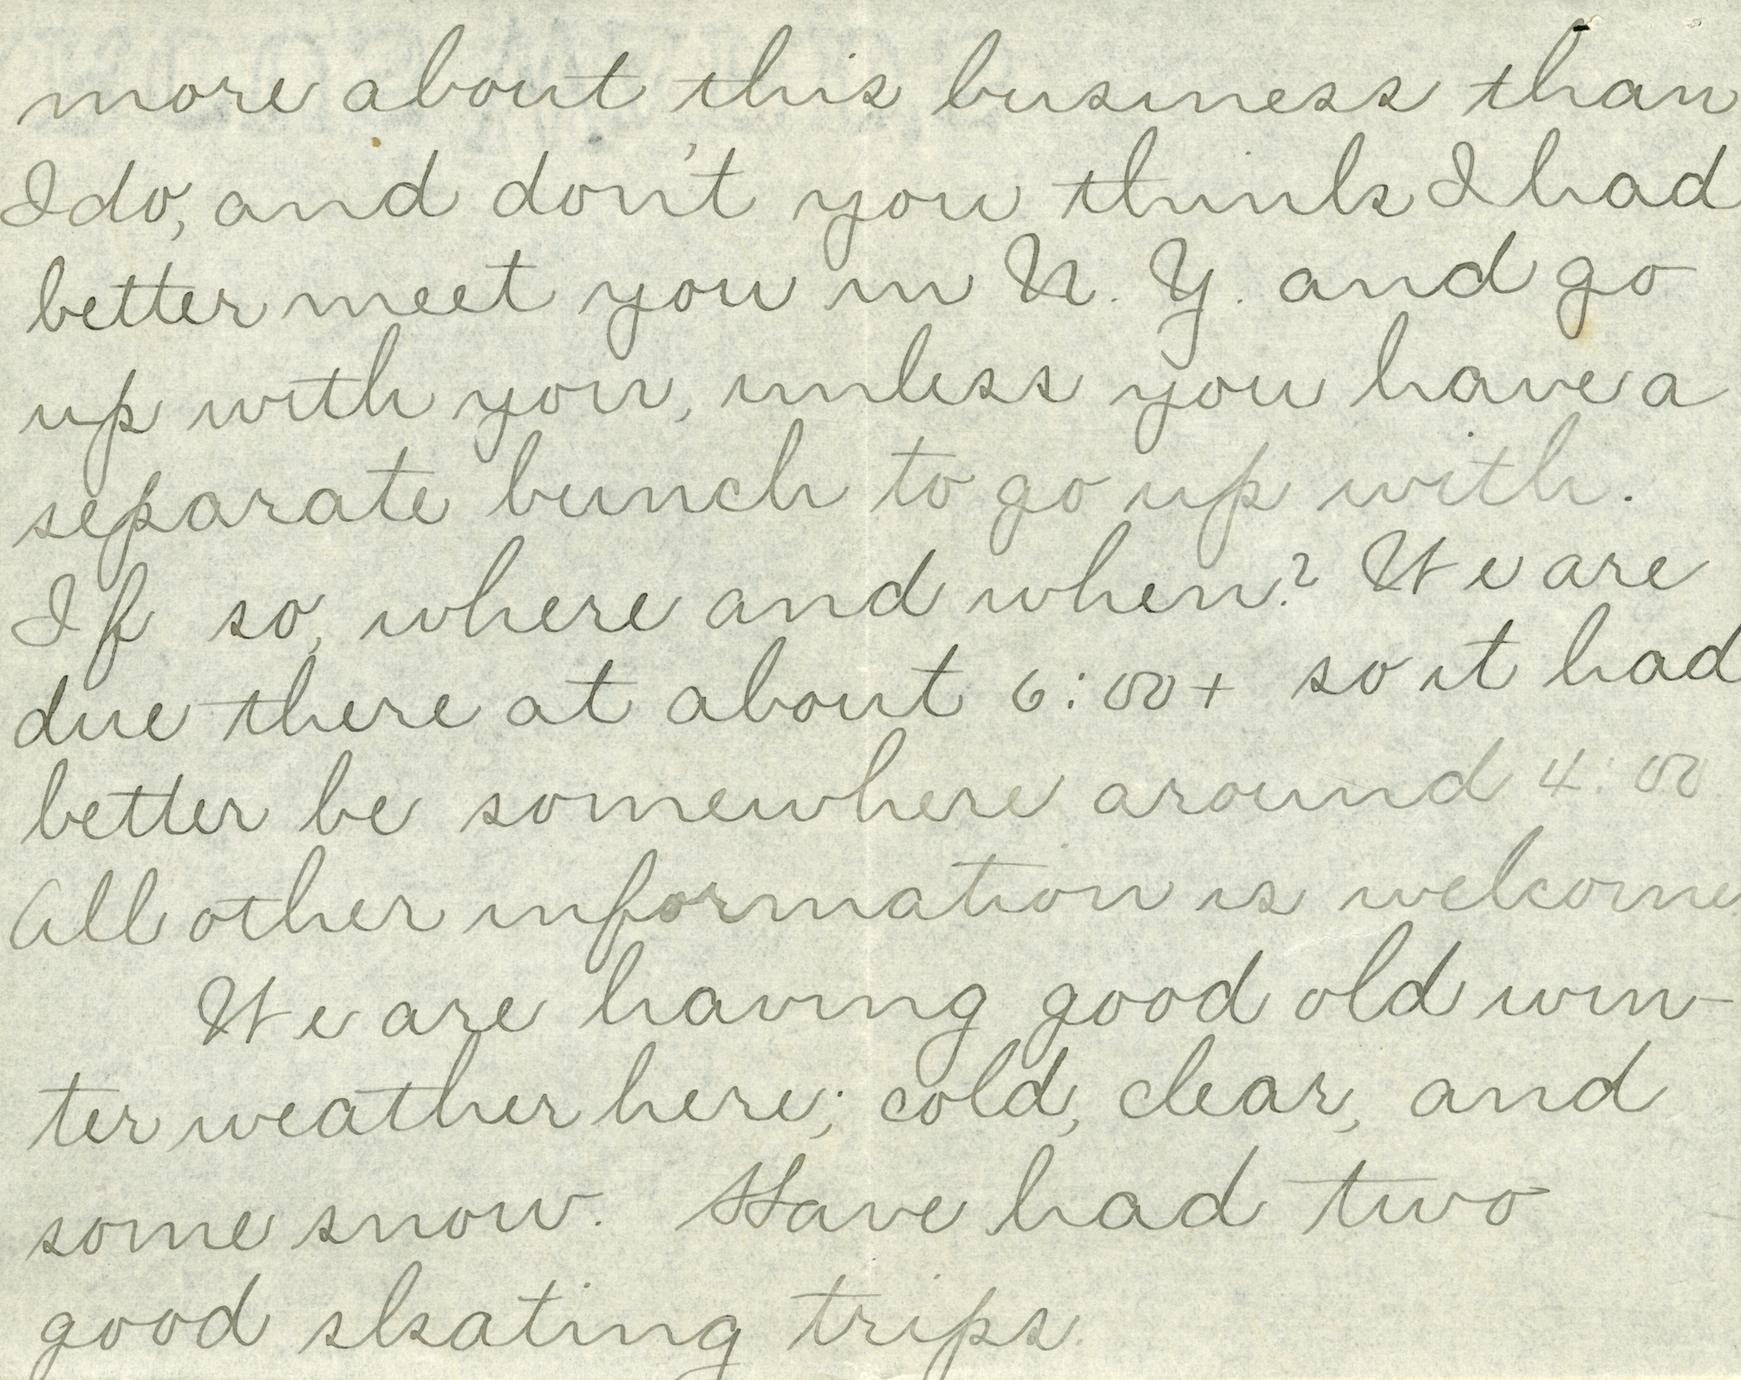 more about this business than
I do, and don't you think I had
better meet you in N. Y. and go
up with you, unless you have a
separate bunch to go up with.
If so, where and when? We are
due there at about 6:00+ so it had
better be somewhere around 4:00
All other information is welcome.
We are having good old win-
ter weather here; cold, clear, and
some snow. Have had two
good skating trips.